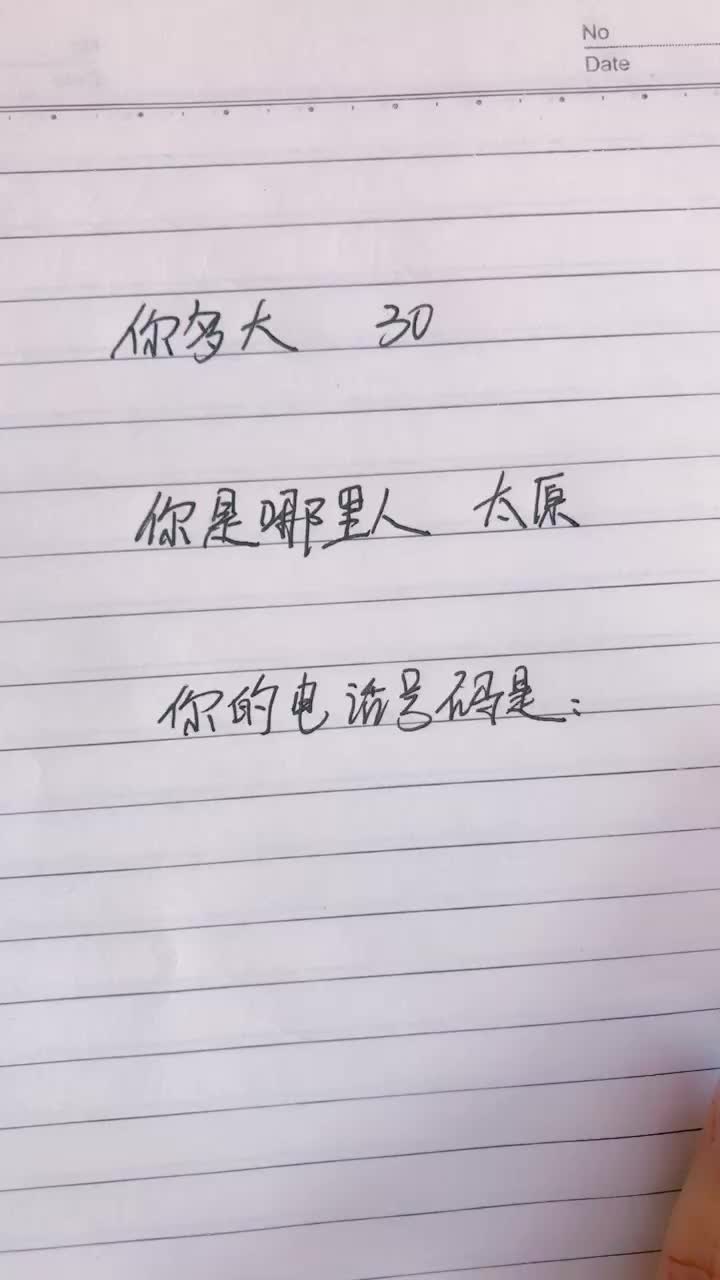 No
Date
你多大 30
你是哪里人 太原
你的电话号码是：